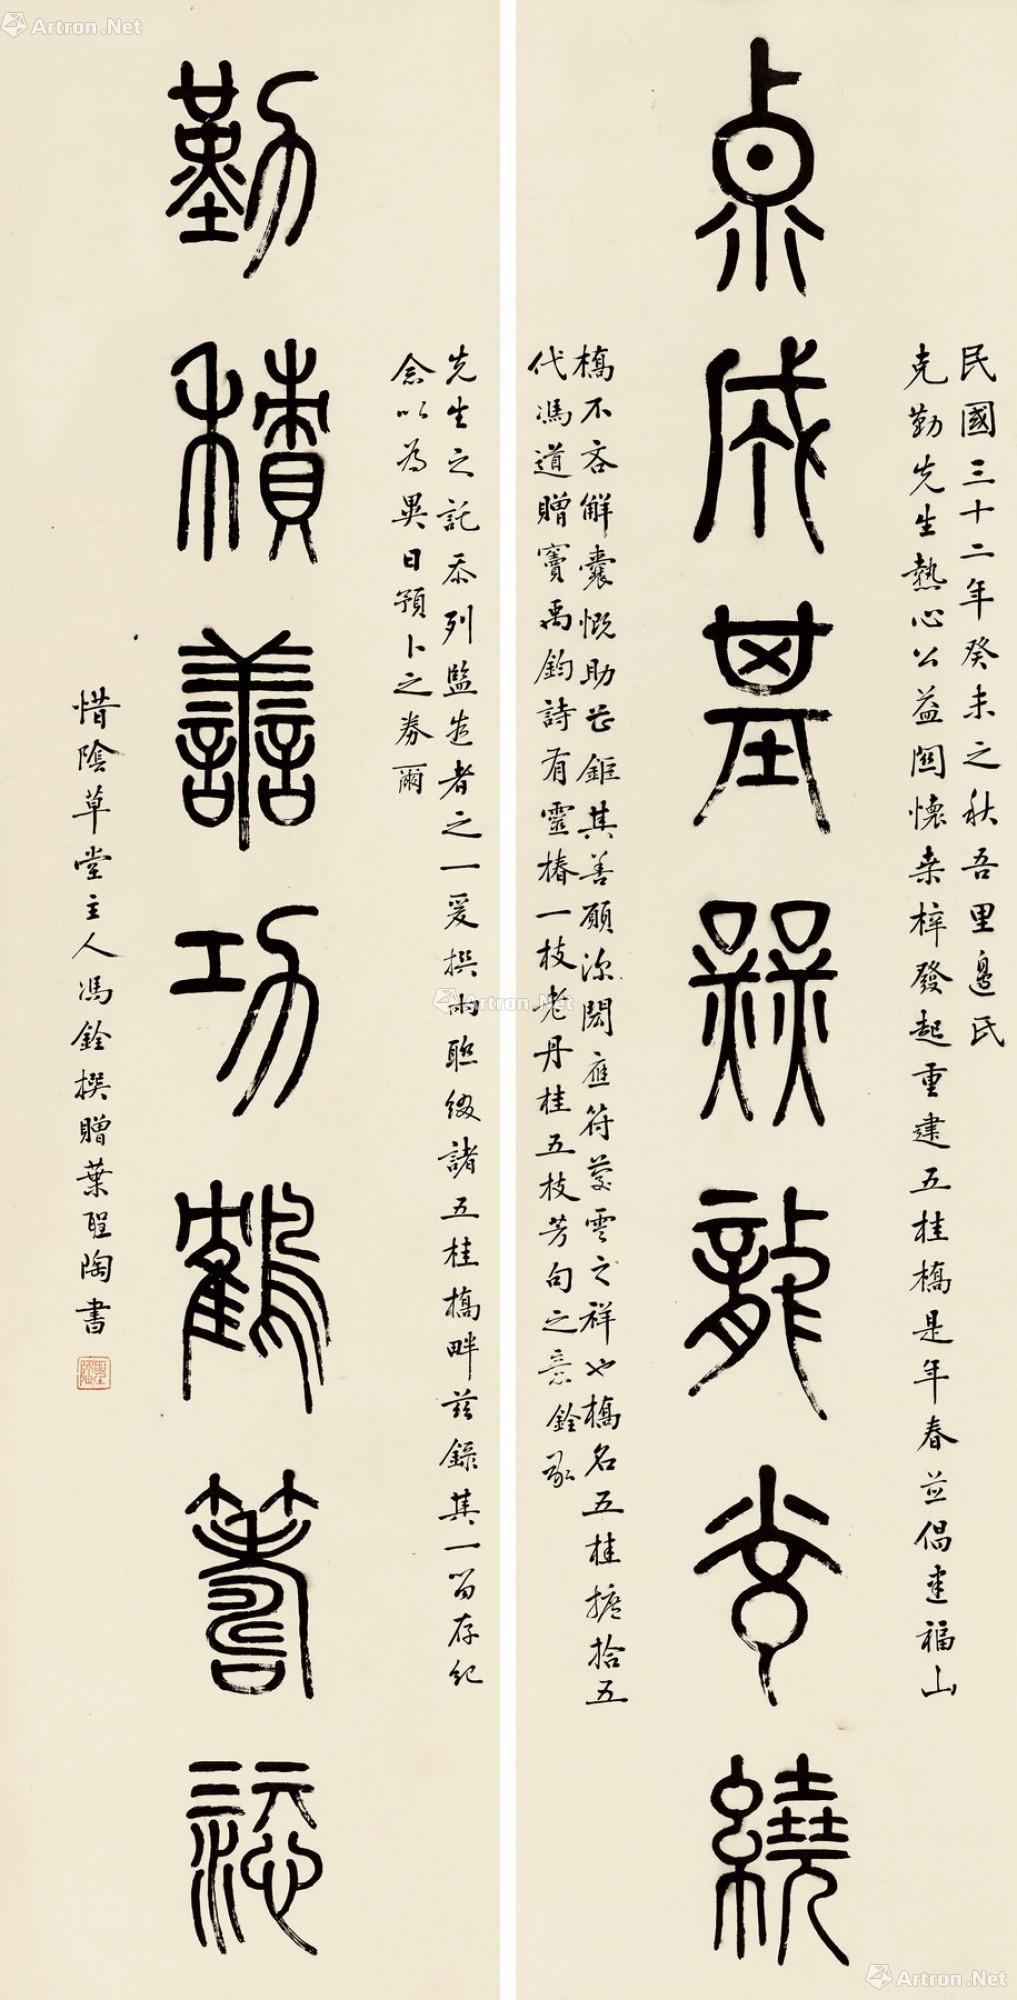 民國三十二年癸未之秋吾里邊氏
克勤先生熱心公益關懷桑梓發起重建五桂橋是年春並倡建福山
克成基業龍繞
橋不吝解囊慨助鉅其善願深閎應符慶雲之祥也橋名五桂摭拾五
代馮道贈竇禹鈞詩有靈椿一枝老丹桂五枝芳句之意銓承
先生之託忝列監造者之一爰撰兩聯綴諸五桂橋畔茲錄其一留存紀
念以為異日預卜之券爾
勤積善功鶴籌添
惜陰草堂主人馮銓撰贈葉聖陶書
聖陶
Artron.Net
Artron.Net
Artron.Net